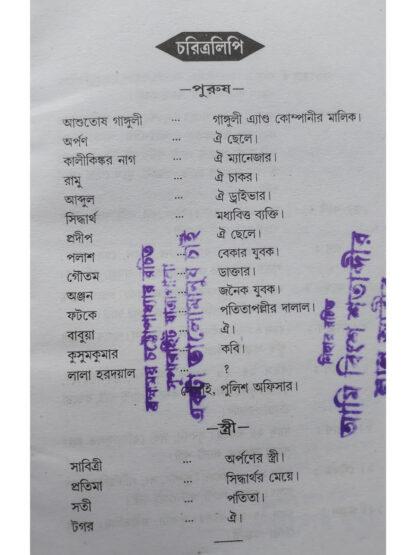 চরিত্রলিপি
—পুরুষ—
আশুতোষ গাঙ্গুলী ... গাঙ্গুলী এ্যাণ্ড কোম্পানীর মালিক।
অর্পণ ... ঐ ছেলে।
কালীকিঙ্কর নাগ ... ঐ ম্যানেজার।
রামু ... ঐ চাকর।
আব্দুল ... ঐ ড্রাইভার।
সিদ্ধার্থ ... মধ্যবিত্ত ব্যক্তি।
প্রদীপ ... ঐ ছেলে।
পলাশ ... বেকার যুবক।
গৌতম ... ডাক্তার।
অঞ্জন ... জনৈক যুবক।
ফটকে ... পতিতাপল্লীর দালাল।
বাবুয়া ... ঐ।
কুসুমকুমার ... কবি।
লালা হরদয়াল ... ?
পুলিশ অফিসার।
—স্ত্রী—
সাবিত্রী ... অর্পণের স্ত্রী।
প্রতিমা ... সিদ্ধার্থর মেয়ে।
সতী ... পতিতা।
টগর ... ঐ।
চট্টোপাধ্যায় রচিত
সুপারহিট
একটা ভালোমানুষ চাই
রচিত
আমি বিশে শতাব্দীর